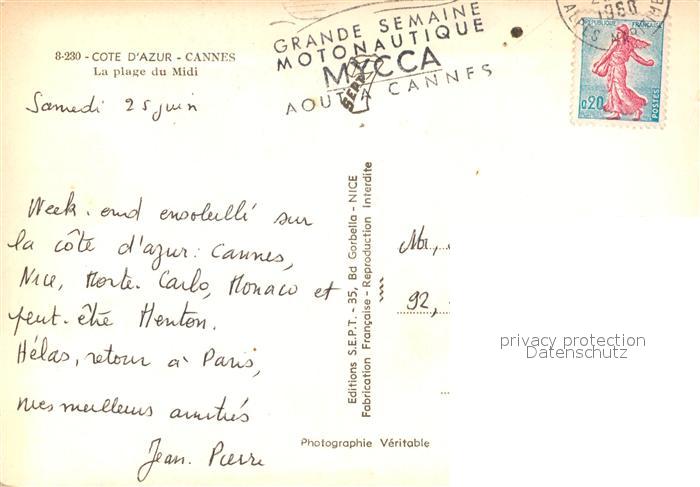 8-230 - COTE D'AZUR - CANNES
La plage du Midi
GRANDE SEMAINE
MOTONAUTIQUE
MYCCA
AOUT A CANNES
1960
ALPES MARITIMES
REPUBLIQUE FRANÇAISE
0,20
POSTES
Samedi 25 juin
Week-end ensoleillé sur
la côte d'azur : Cannes,
Nice, Monte-Carlo, Monaco et
peut-être Menton.
Hélas, retour à Paris,
mes meilleurs amitiés
Jean-Pierre
Editions S.E.P.T. - 35, Bd Gorbella - NICE
Fabrication Française - Reproduction Interdite
Mr,
92,
privacy protection
Datenschutz
Photographie Véritable